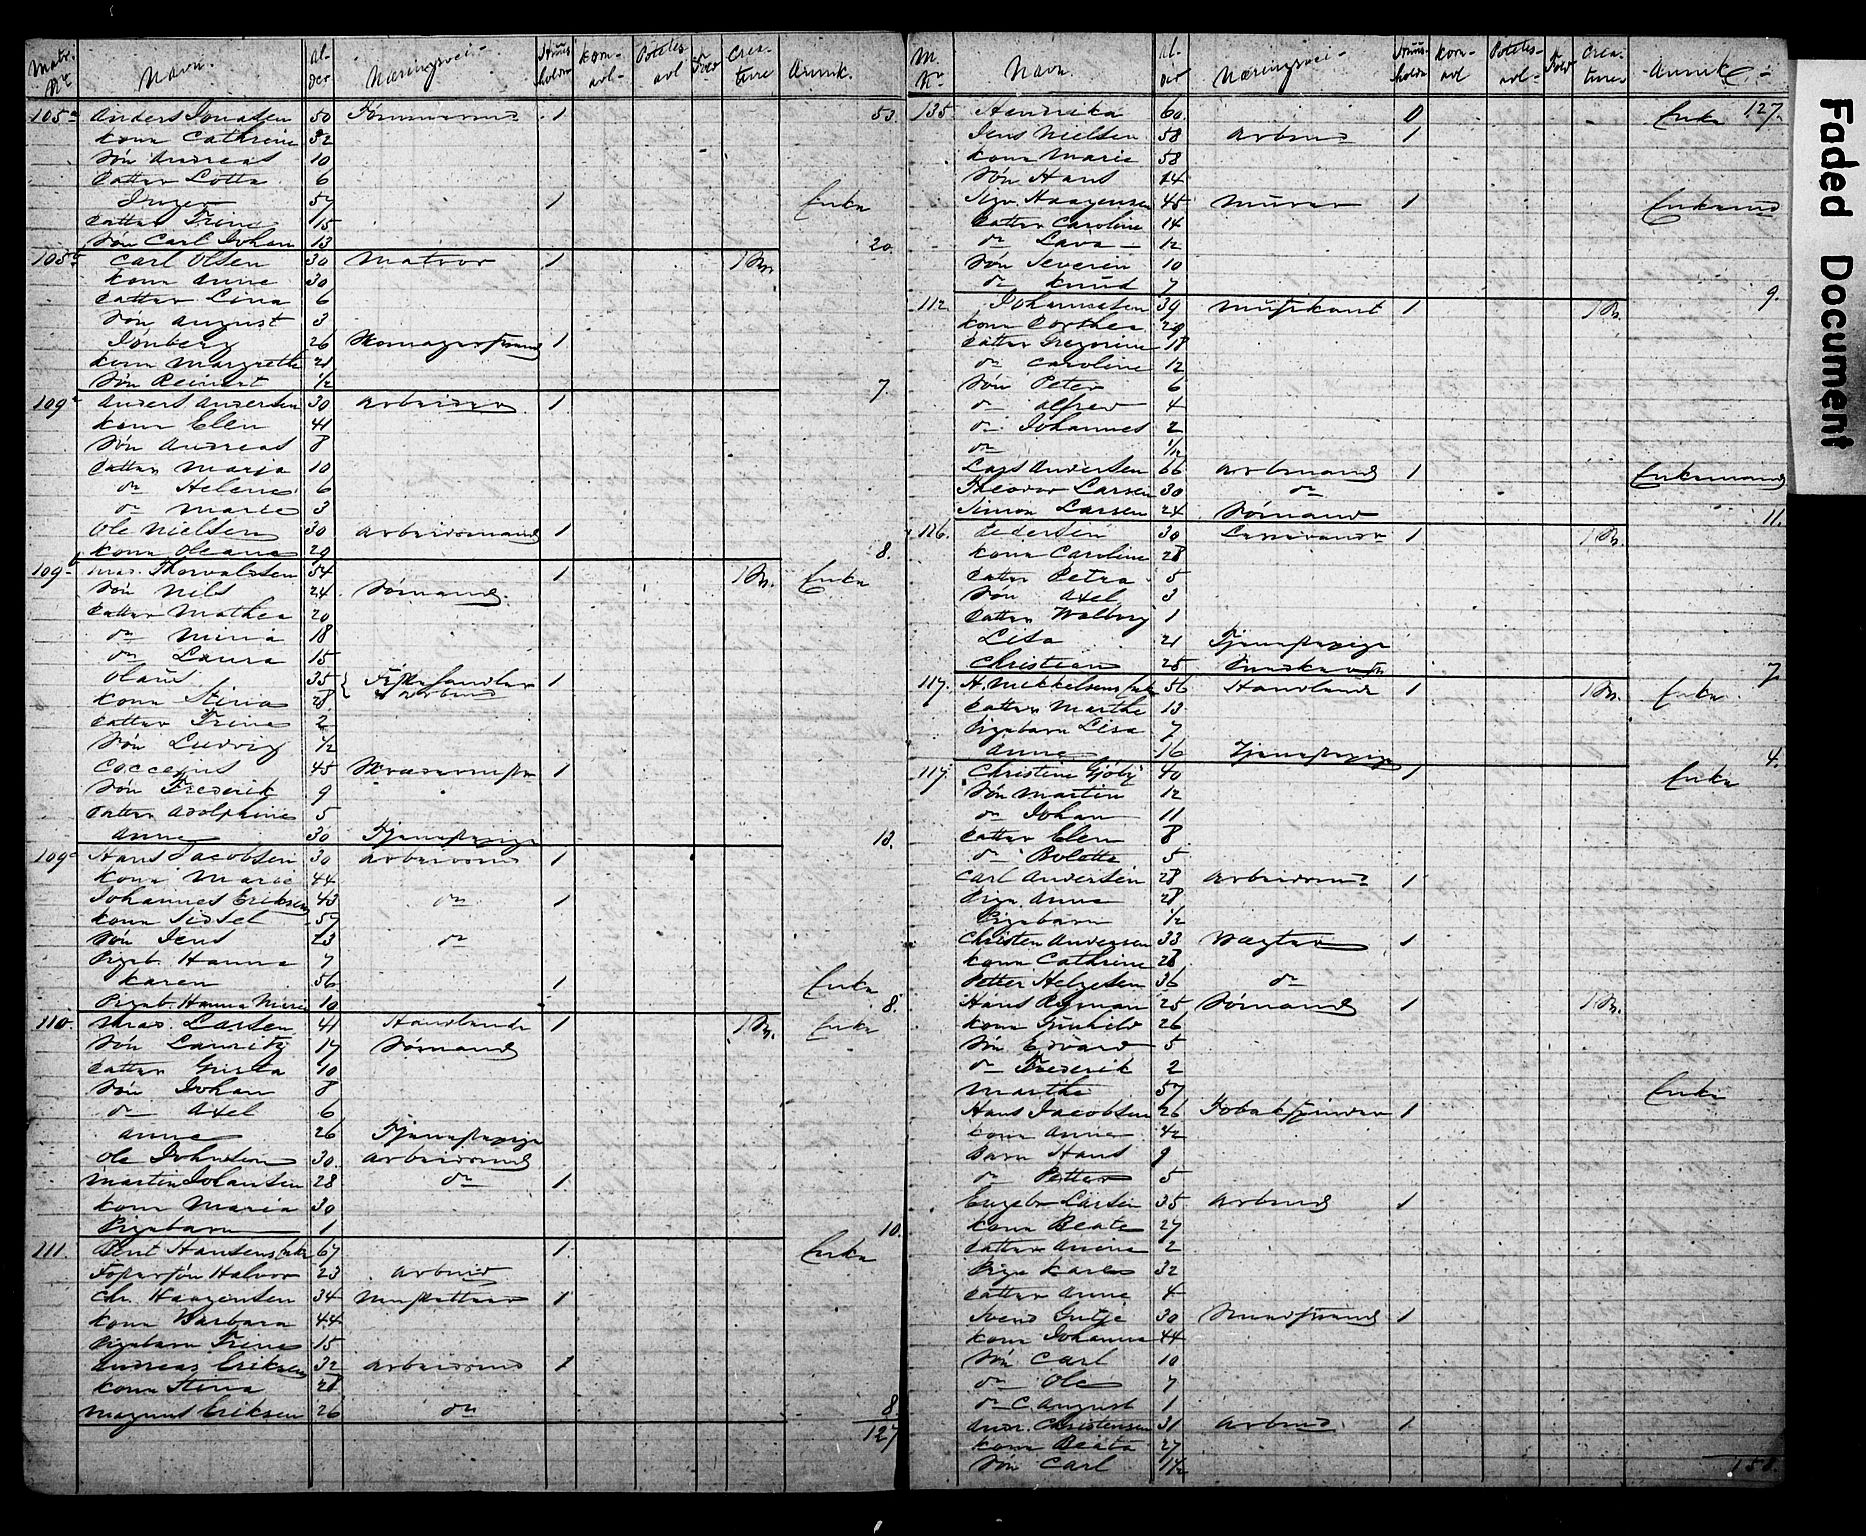 Matr. Nr. Navn. Alder Næringsvei. Huusholdn Kornavl. Potetesavl Creature Anmk.
105a Anders Jonassen 50 Tømmermd 1 53
Kona Cathrine 32
Søn Andreas 10
Datter Lotta 6
Inger 57 1 Enke
Datter Trine 15
Søn Carl Johan 13 20.
105b Carl Olsen 30 Matros 1
Kona Anne 30
Datter Lina 6
Søn August 3
26 Skomagersvend 1
Kona Margrethe 21
Søn Reinert 1/2 7.
109a Anders Andersen 30 Arbeider 1
Kona Elen 41
Søn Andreas 8
Datter Maria 10
do Helene 6
do Marie 3
Ole Nielsen 30 Arbeidsmand 1
Kona Oleana 29 8.
109b Mad. Thorvaldsen 54 1 Enke
Søn Nils 24 Sømand.
Datter Mathea 20
do Mina 18
do Laura 15
Olaus 35 Fiskehandler arbmd 1
Kona Stina 28
Datter Trine 2
Søn Ludvig 1/2
Coccejus 45 1
Søn Frederik 9
Datter Adolphine 5
Anne 30 Tjenestepige 13.
109c Hans Jacobsen 30 Arbeidsmd 1
Kona Marie 44
Johannes Eriksen 43 do 1
Kona Sidsel 57
Søn Jens 23 do
Pigeb. Hanna 7
Karen 56 1 Enke
Pigeb. Hanna Marie 10 8.
110. Mad. Larsen 41 Handlende 1 Enke
Søn Lauritz 17 Sømand
Datter 10
Søn Johan 8
do Axel 6
Anne 26 Tjenestepige
Ole Johnsen 30. Arbeidsmd
Martin Johansen 28 do 1
Kona Maria 30
Pigebarn 1 10.
111. Bent Hansens Enke 67 1 Enke
Fostersøn Halvor 23 Arbeid
Chr. Haagensen 34 1
Kona Barbara 44
Pigebarn Trine 15
Andreas Eriksen 32 Arbeidsmd 1
Kona Stina 28
Magnus Eriksen 26 do 8
127
M. Nr. Navn. Alder Næringsvei. Huusholdn Kornavl Potetesavl. Creaturer Anmk.
135 Hendrika 60 0 Enke 127.
Jens Nielsen 58 Arbmd 1
Kona Marie 58
Søn Hans 14
Haagensen 45 Murer 1 Enkemd
Datter Caroline 14
do Lava 12
Søn Severin 10
do Knud 7 9.
112 Johannesen 39 Musikant 1
Kona Dorthea 29
Datter Gregorine 18
do Caroline 12
Søn Peter 6
do Alfred 4
do Johannes 2
do 1/12
Lars Andersen 66 Arbmand 1 Enkemand
Theodor Larsen 30 do
Simon Larsen 24 Sømand 11.
126. Pedersen 30 1
Kona Caroline 28
Datter Petra 5
Søn Axel 3
Datter Walborg 1
Lisa 21 Tjenestepige
Christian 25 7
117. H. Mikkelsens Enke 56 Handlende 1 Enke
Datter Marthe 13
Pigebarn Lisa 7
Anne 16 Tjenestepige 4.
117. Christine Gjøby 40 1 Enke
Søn Martin 12
do Johan 11
Datter Elen 8
do Bolette 5
Carl Andersen 28 Arbeidsmd 1
Pige Anne 28
Pigebarn 1/2
Christen Andersen 33 Vægter 1
Kona Cathrine 28
Petter Helgesen 36 do
Hans 25 Sømand 1
Kona Gunhild 26
Søn Edvard 5
do Frederik 2
Marthe 57 Enke
Hans Jacobsen 26 Tobakspinder 1
Kona Anne 42
Barn Hans 9
do Petter 5
Engebr Larsen 35 Arbmd 1
Kona Beate 27
Datter Anine 2
Pige Karen 32
Datter Anne 4
Svend 30 1
Kona Johanna 44
Søn Carl 10
do Ole 7
do C. August 1
Andr. Christensen 31 Arbmd. 1
Kona Beata 27
Søn Carl 1 1/2 158.
Faded Document